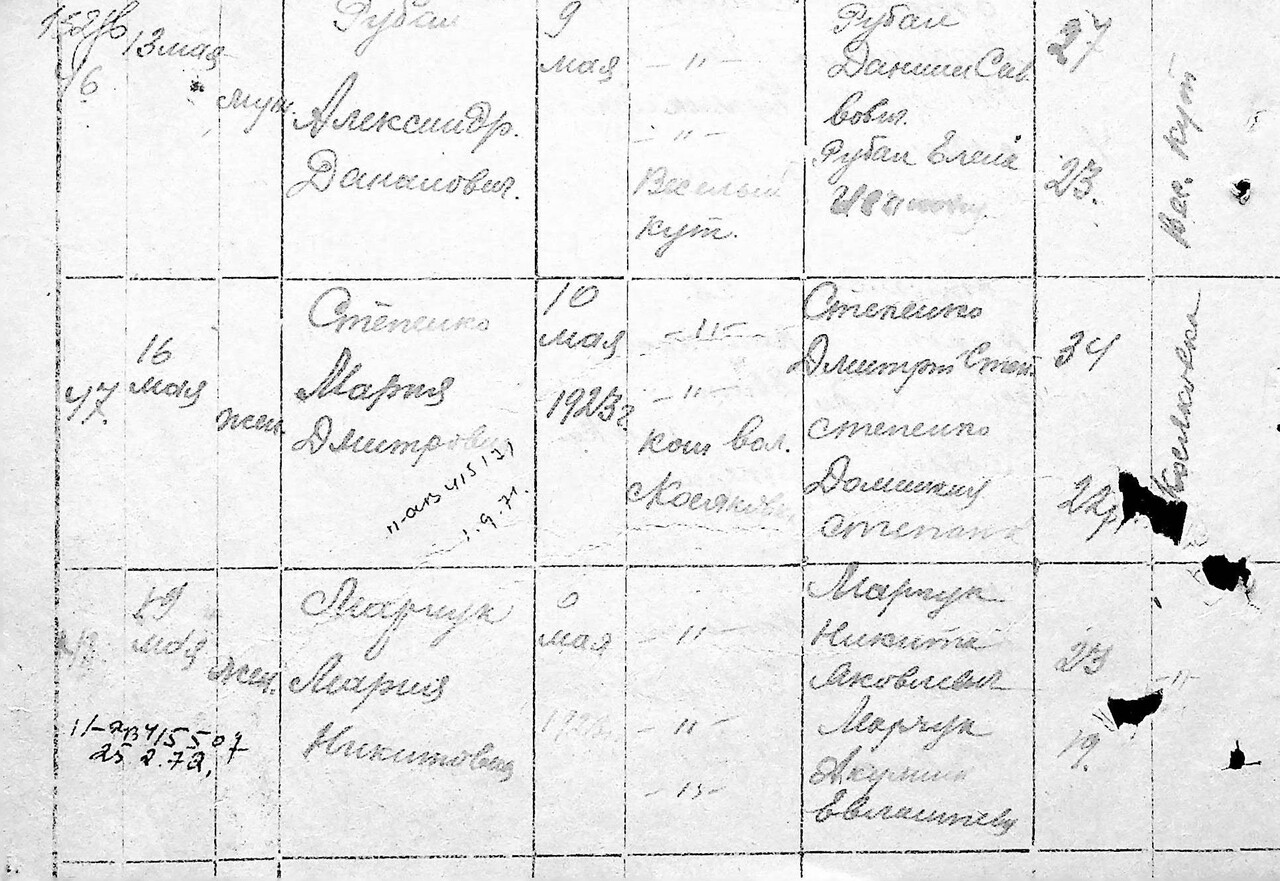 46
13 мая
муж.
Рубан
Александр.
Данилович.
9
мая
- " -
- " -
Веселый
кут.
Рубан
Даниил Сав
вович.
Рубан Елена
27
23.
Вес. Кут
47.
16
мая
жен.
Степенко
Мария
Дмитровна
1.9.71.
10
мая
1923г
- " -
- " -
кош вол.
Косяковка
Степенко
Дмитрий Степ.
степенко
Домникия
степано
34
22
Косяковка
19
мая
жен.
25 2.72.
Марчук
Мария
Никитовна
мая
- " -
- " -
- " -
Марчук
Никита
Яковлевич
Марчук
Акулина
23
19.
- " -